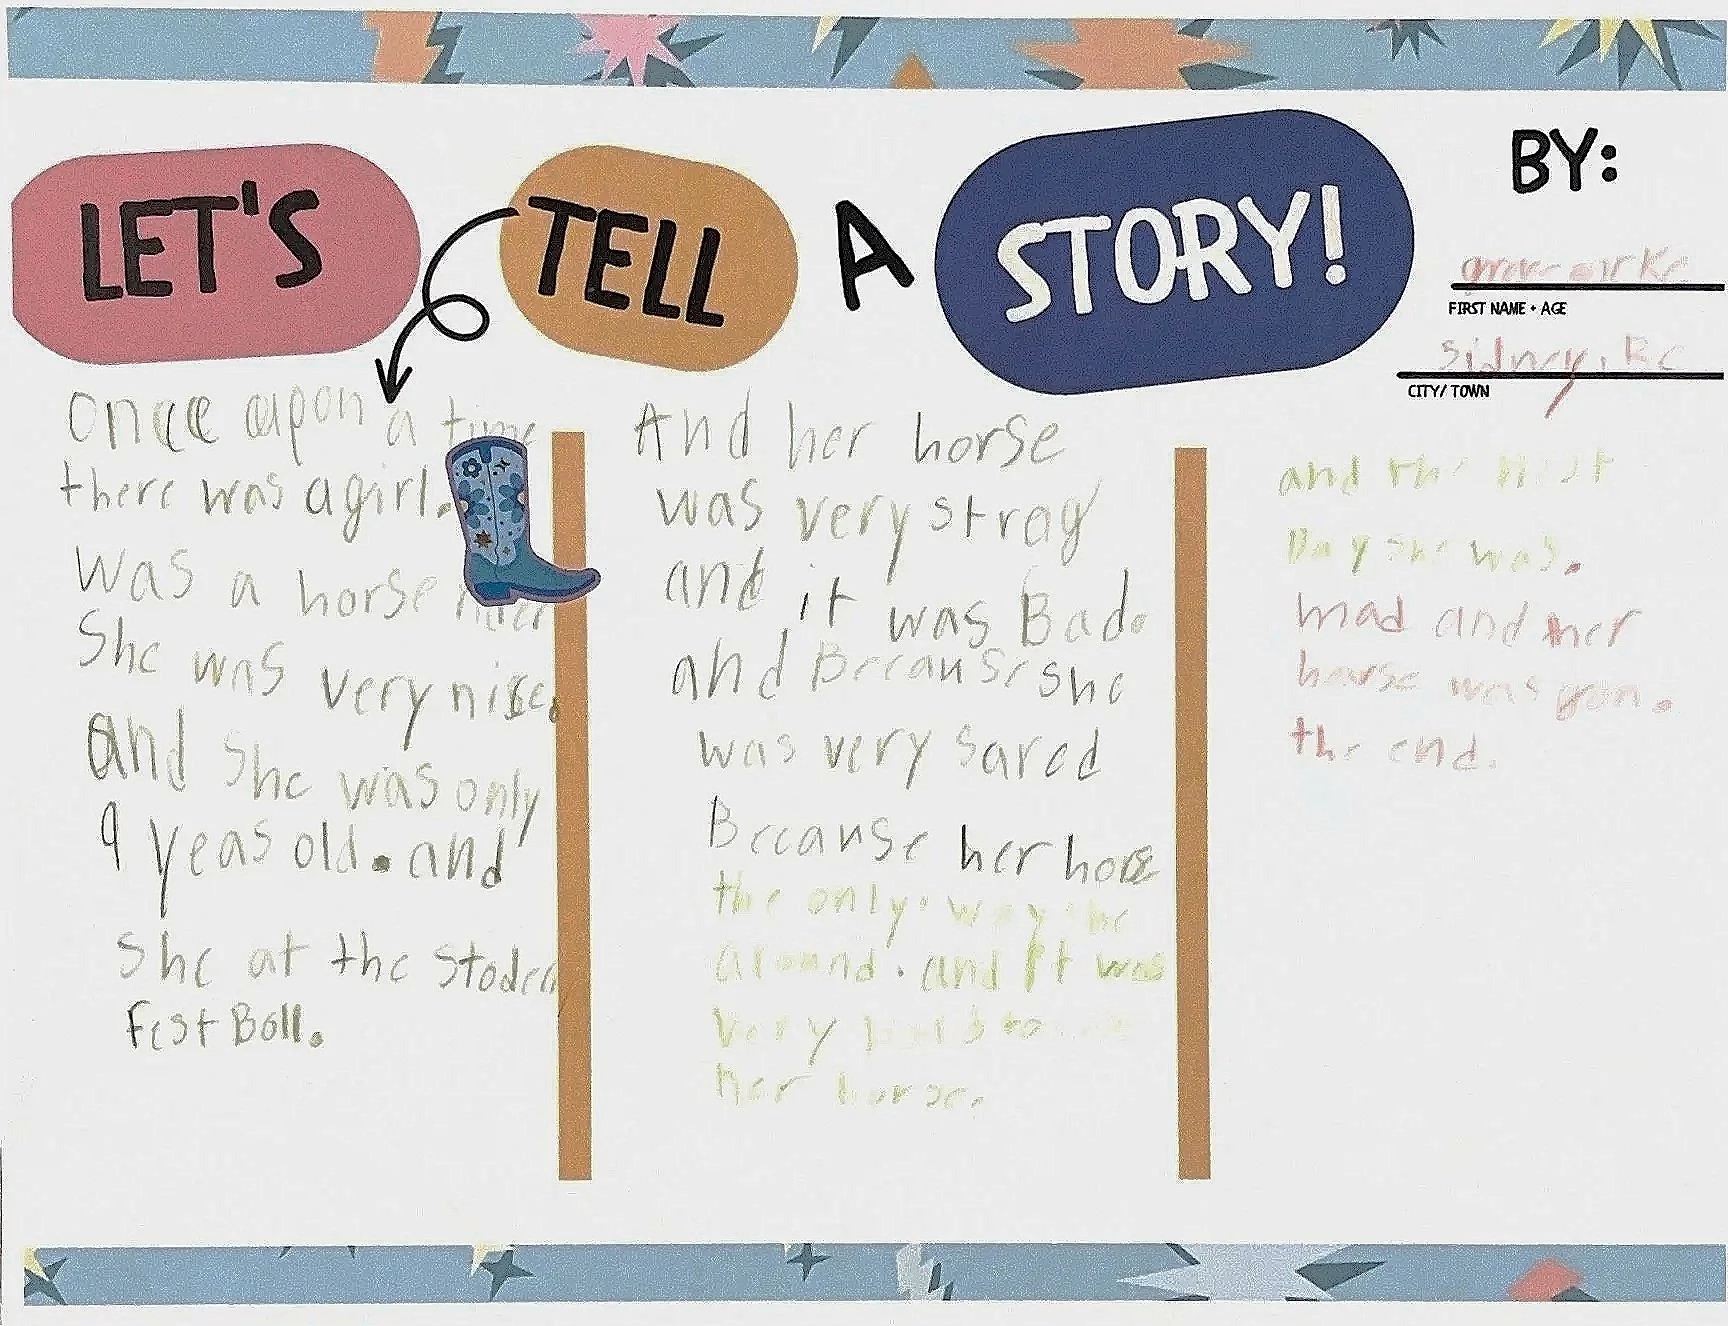 LET'S TELL A STORY!
BY:
FIRST NAME + AGE
Sidney, BC
CITY/ TOWN
Once upon a time
there was a girl.
Was a horse rider
She was very nice.
and She was only
9 yeas old. and
She at the Stoden
Fest Boll.
And her horse
was very strog
and it was Bad.
and Because she
was very sared
Because her horse
the only. way she
around. and it was
Very to
her horse.
and the next
Day she was.
mad and her
horse was gon.
the end.